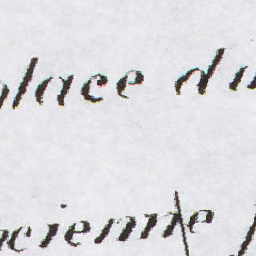 place du
ncienne